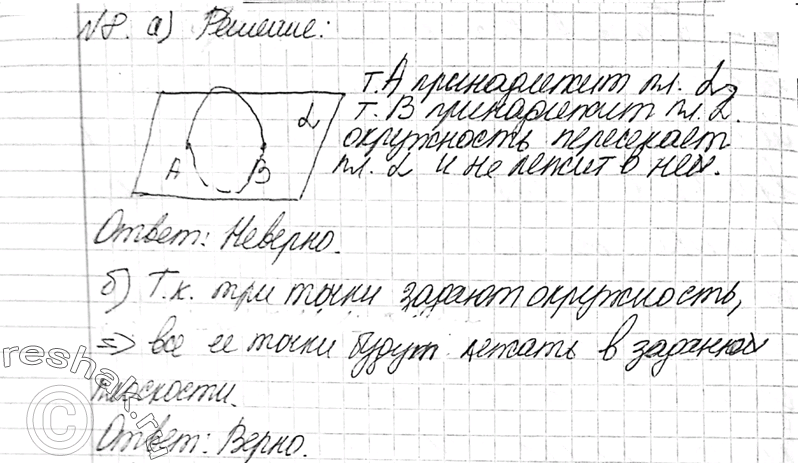 №8. а) Решение:
т. А принадлежит пл. α,
т. В принадлежит пл. α.
окружность пересекает
пл. α и не лежит в ней.
α
А В
Ответ: Неверно.
б) Т.к. три точки задают окружность,
=> все ее точки будут лежать в заданной
плоскости.
Ответ: Верно.
© reshak.ru